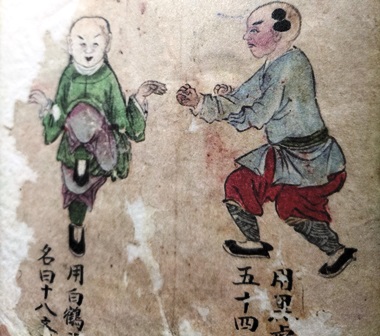 用黑
五十四
用白鶴
名曰十八